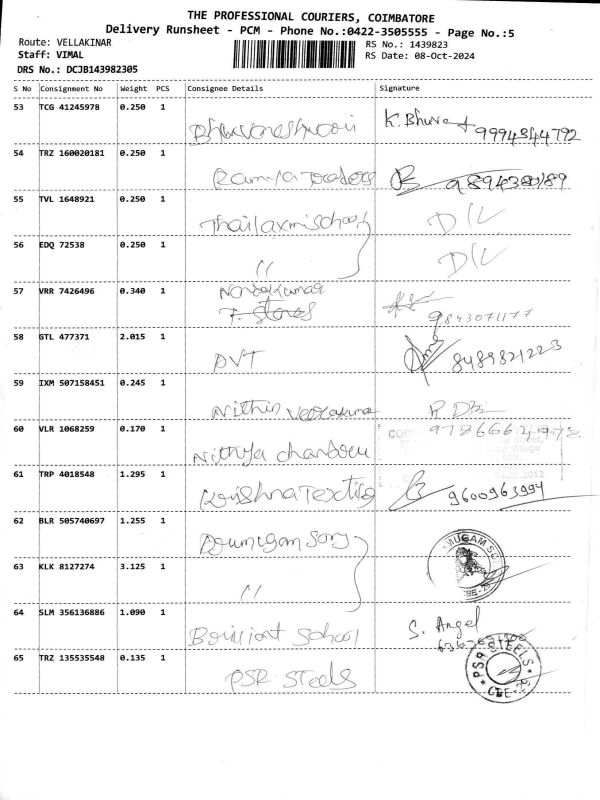 THE PROFESSIONAL COURIERS, COIMBATORE
Delivery Runsheet - PCM - Phone No.:0422-3505555 - Page No.:5
Route: VELLAKINAR
RS No.: 1439823
Staff: VIMAL
RS Date: 08-Oct-2024
DRS No.: DCJB143982305
S No Consignment No Weight PCS Consignee Details Signature
53 TCG 41245978 0.250 1 Bhuvaneshwari K. Bhuva 9994344792
54 TRZ 160020181 0.250 1 Ramya Traders
55 TVL 1648921 0.250 1 Thailaxmi school D/L
56 EDQ 72538 0.250 1 " D/L
57 VRR 7426496 0.340 1 Nandakumar
T. Stores 9843071177
58 GTL 477371 2.015 1 DVT 8489821223
59 IXM 507158451 0.245 1 Nithin
60 VLR 1068259 0.170 1 Nithya 9786664972
61 TRP 4018548 1.295 1 Krishna Textiles 9600963994
62 BLR 505740697 1.255 1
63 KLK 8127274 3.125 1 " MUGAM SC
64 SLM 356136886 1.090 1 Brilliant School S. Angel
65 TRZ 135535548 0.135 1 PSR Steels PSR STEELS